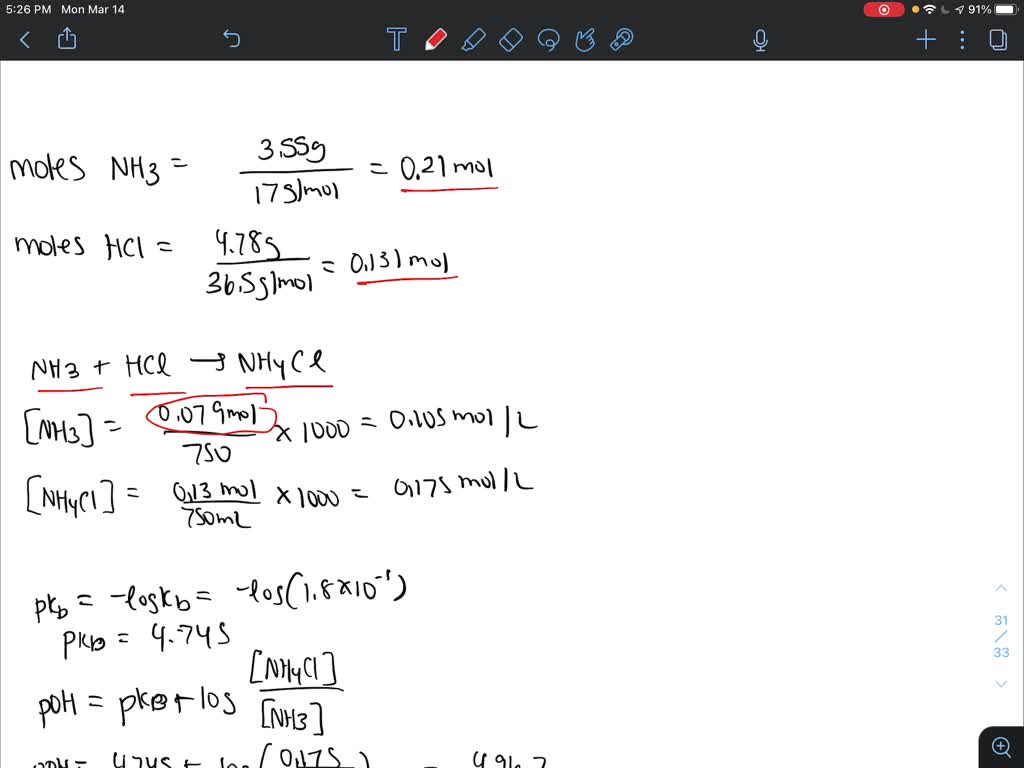 5:26 PM Mon Mar 14 91%
T
moles NH3 = 3.55g / 17g/mol = 0.21 mol
moles HCl = 4.78g / 36.5g/mol = 0.131 mol
NH3 + HCl → NH4Cl
[NH3] = 0.079mol / 750 × 1000 = 0.105 mol/L
[NH4Cl] = 0.13 mol / 750mL × 1000 = 0.175 mol/L
pkb = -logkb = -log(1.8×10⁻⁵)
pkb = 4.745
31
/
33
pOH = pkB + log [NH4Cl] / [NH3]
pOH = 4.745 + log (0.175 ) =